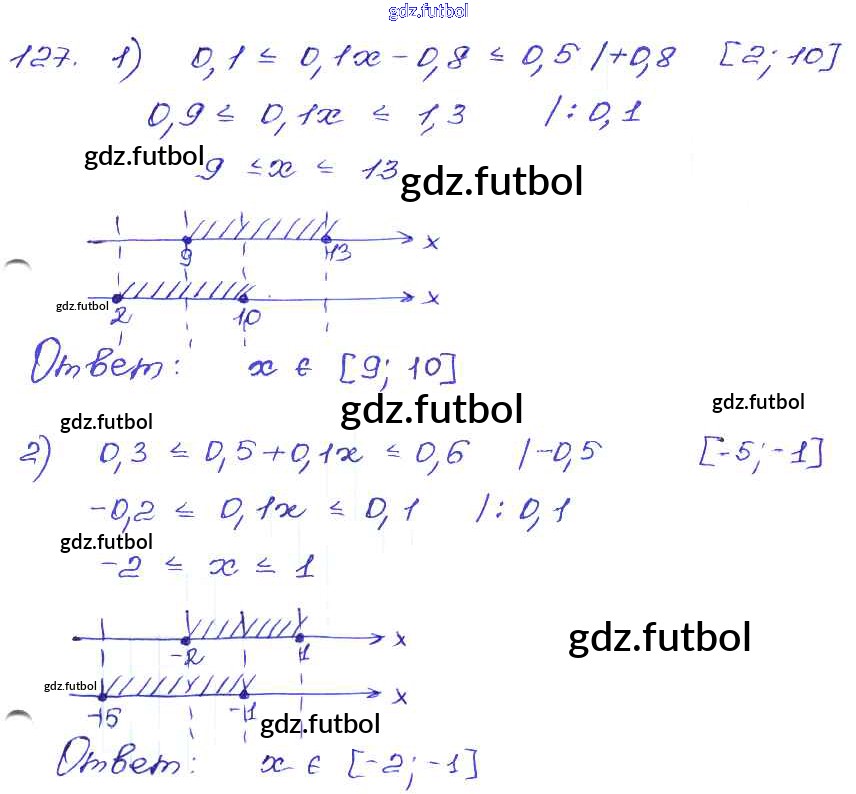 gdz.futbol
127. 1) 0,1 ≤ 0,1x - 0,8 ≤ 0,5 /+0,8 [2; 10]
0,9 ≤ 0,1x ≤ 1,3 /: 0,1
gdz.futbol
9 ≤ x ≤ 13
gdz.futbol
x
9 13
gdz.futbol
x
2 10
Ответ: x ∈ [9; 10]
gdz.futbol
gdz.futbol
gdz.futbol
2) 0,3 ≤ 0,5+0,1x ≤ 0,6 /-0,5 [-5; -1]
-0,2 ≤ 0,1x ≤ 0,1 /: 0,1
gdz.futbol
-2 ≤ x ≤ 1
gdz.futbol
x
-2 1
gdz.futbol
x
-5 -1
gdz.futbol
Ответ: x ∈ [-2; -1]